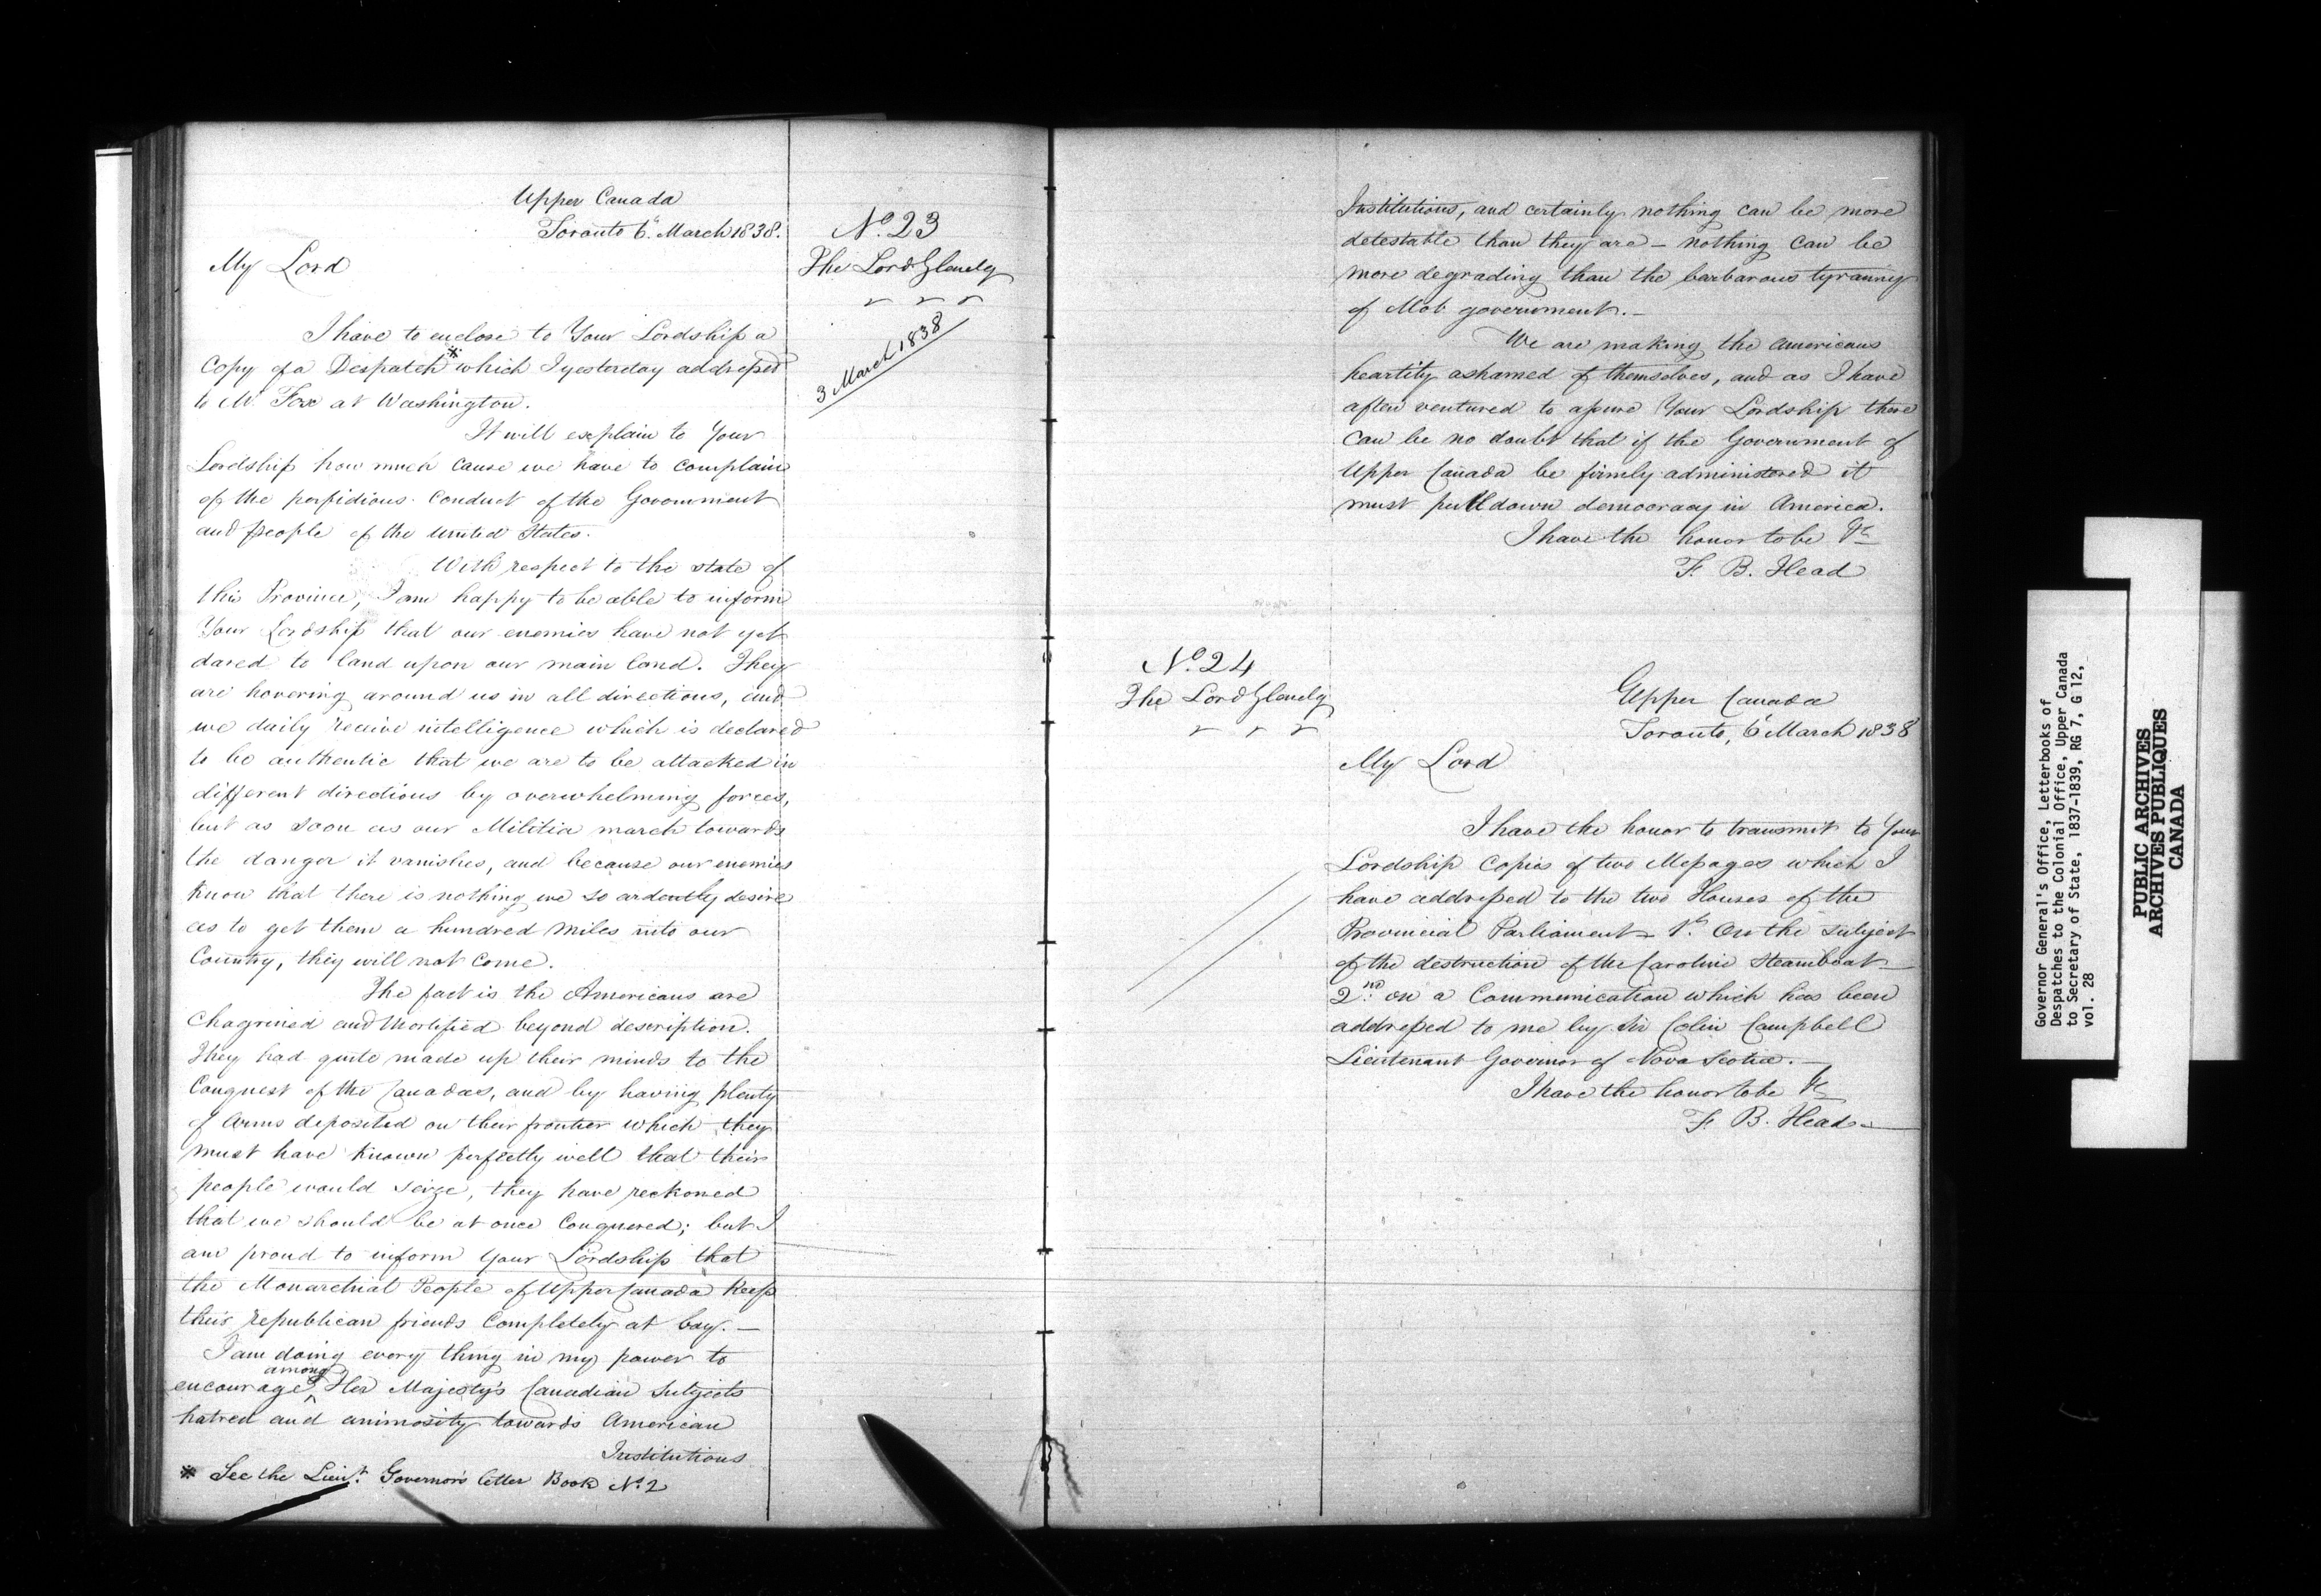 Upper Canada
Toronto 6th March 1838.
My Lord
I have to enclose to Your Lordship a
Copy of a Despatch * which I yesterday addressed
to Mr. Fox at Washington.
It will explain to Your
Lordship how much cause we have to complain
of the perfidious conduct of the Government
and people of the United States.
With respect to the state of
this Province, I am happy to be able to inform
Your Lordship that our enemies have not yet
dared to land upon our main land. They
are hovering around us in all directions, and
we daily receive intelligence which is declared
to be authentic that we are to be attacked in
different directions by overwhelming forces,
but as soon as our Militia march towards
the danger it vanishes, and because our enemies
know that there is nothing we so ardently desire
as to get them a hundred miles into our
Country, they will not come.
The fact is the Americans are
chagrined and Mortified beyond description.
They had quite made up their minds to the
Conquest of the Canadas, and by having plenty
of Arms deposited on their frontier which they
must have known perfectly well that their
people would seize, they have reckoned
that we should be at once Conquered; but I
am proud to inform Your Lordship that
the Monarchial People of Upper Canada keep
their republican friends Completely at bay. —
I am doing every thing in my power to
among
encourage ^ Her Majesty's Canadian Subjects
hatred and animosity towards American
Institutions
* See the Lieut. Governor's letter Book No. 2
No. 23
The Lord Glenelg
3 March 1838
Institutions, and certainly nothing can be more
detestable than they are — nothing can be
more degrading than the barbarous tyranny
of Mob government. —
We are making the Americans
heartily ashamed of themselves, and as I have
often ventured to assure Your Lordship there
can be no doubt that if the Government of
Upper Canada be firmly administered it
must pull down democracy in America.
I have the honor to be &c
F. B. Head
No. 24
The Lord Glenelg
Upper Canada
Toronto, 6th March 1838
My Lord
I have the honor to transmit to Your
Lordship Copies of two Messages which I
have addressed to the two Houses of the
Provincial Parliament — 1st. On the subject
of the destruction of the Caroline Steamboat —
2nd on a Communication which has been
addressed to me by Sir Colin Campbell
Lieutenant Governor of Nova Scotia. —
I have the honor to be &c
F. B. Head —
Governor General's Office, Letterbooks of
Despatches to the Colonial Office, Upper Canada
to Secretary of State, 1837-1839, RG 7, G 12,
vol. 28
PUBLIC ARCHIVES
ARCHIVES PUBLIQUES
CANADA